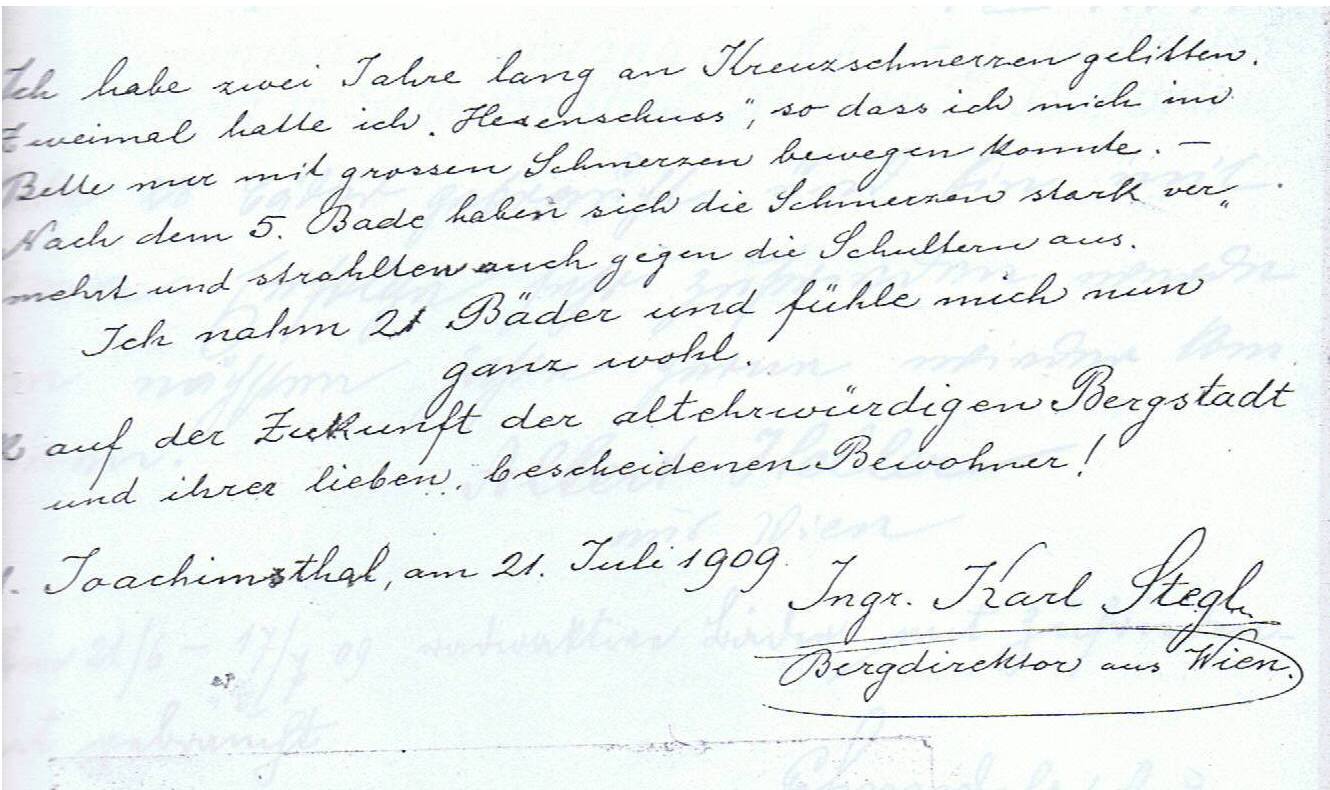 Ich habe zwei Jahre lang an Kreuzschmerzen gelitten.
Zweimal hatte ich „Hexenschuss“, so dass ich mich im
Bette nur mit grossen Schmerzen bewegen konnte. –
Nach dem 5. Bade haben sich die Schmerzen stark ver„
mehrt und strahlten auch gegen die Schultern aus.
Ich nahm 21 Bäder und fühle mich nun
ganz wohl.
auf der Zukunft der altehrwürdigen Bergstadt
und ihrer lieben, bescheidenen Bewohner!
Joachimsthal, am 21. Juli 1909.
Ingr. Karl Stegl
Bergdirektor aus Wien.